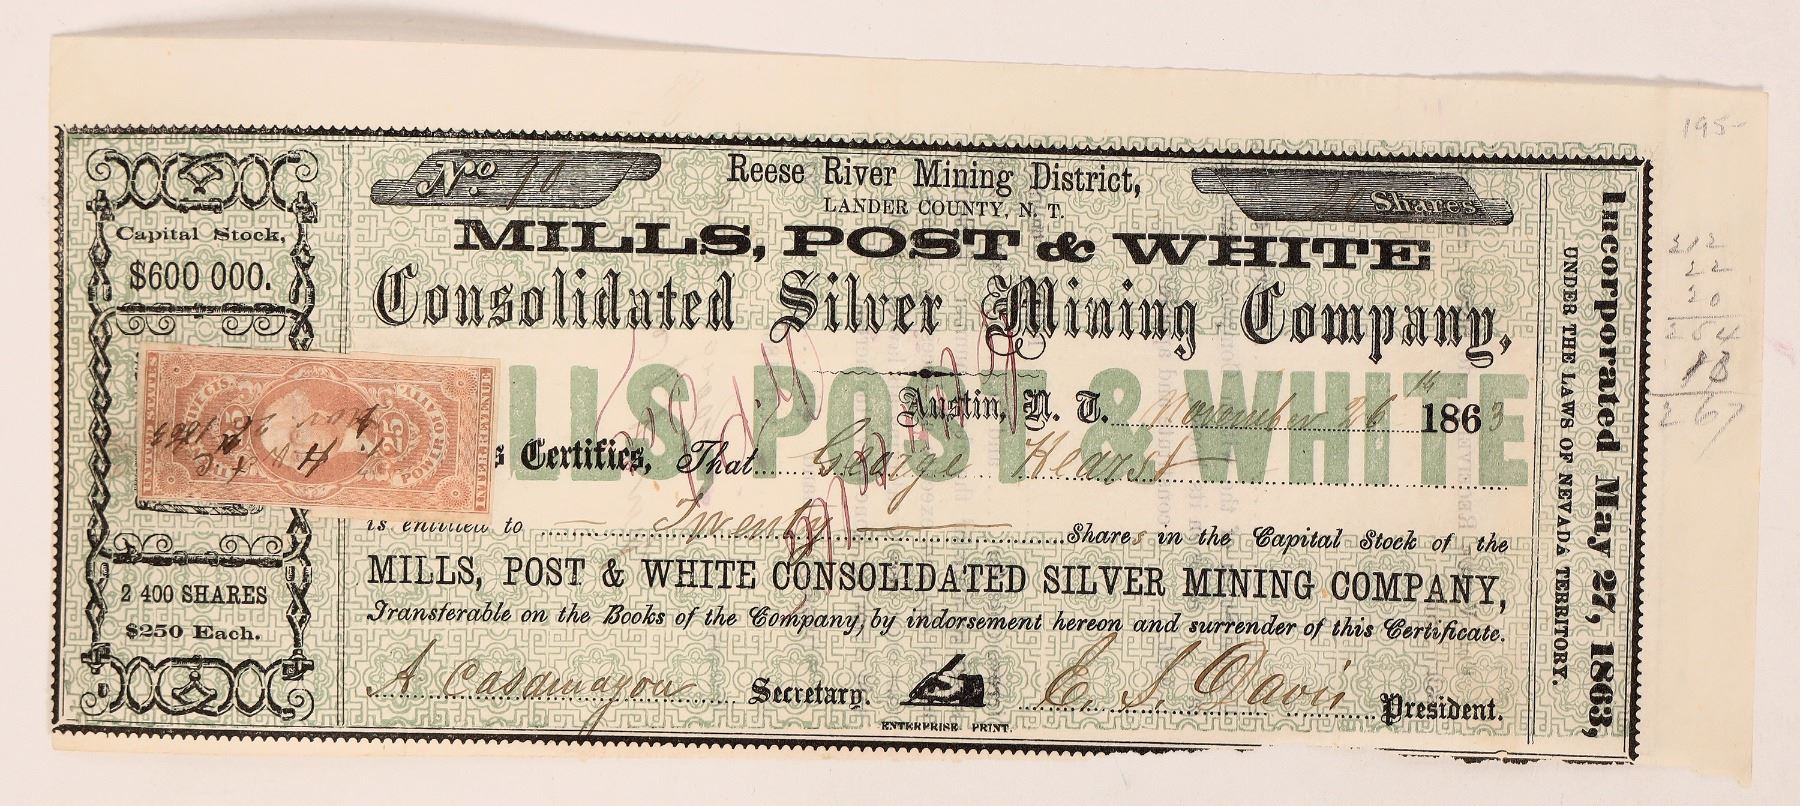 No. 90
Reese River Mining District,
20 Shares
LANDER COUNTY, N. T.
MILLS, POST & WHITE
Consolidated Silver Mining Company,
Capital Stock,
$600 000.
2 400 SHARES
$250 Each.
LLS, POST & WHITE
Austin, N. T. November 26th 1863
s Certifies, That George Hearst
is entitled to Twenty Shares in the Capital Stock of the
MILLS, POST & WHITE CONSOLIDATED SILVER MINING COMPANY,
Transferable on the Books of the Company, by indorsement hereon and surrender of this Certificate.
A Casamayou Secretary. E. S. Davis President.
ENTERPRISE PRINT.
Incorporated May 27, 1863,
UNDER THE LAWS OF NEVADA TERRITORY.
UNITED STATES
INTER REVENUE
25 25
POWER OF ATT'Y
Nov. 26 1863
195-
212
22
20
254
18
267